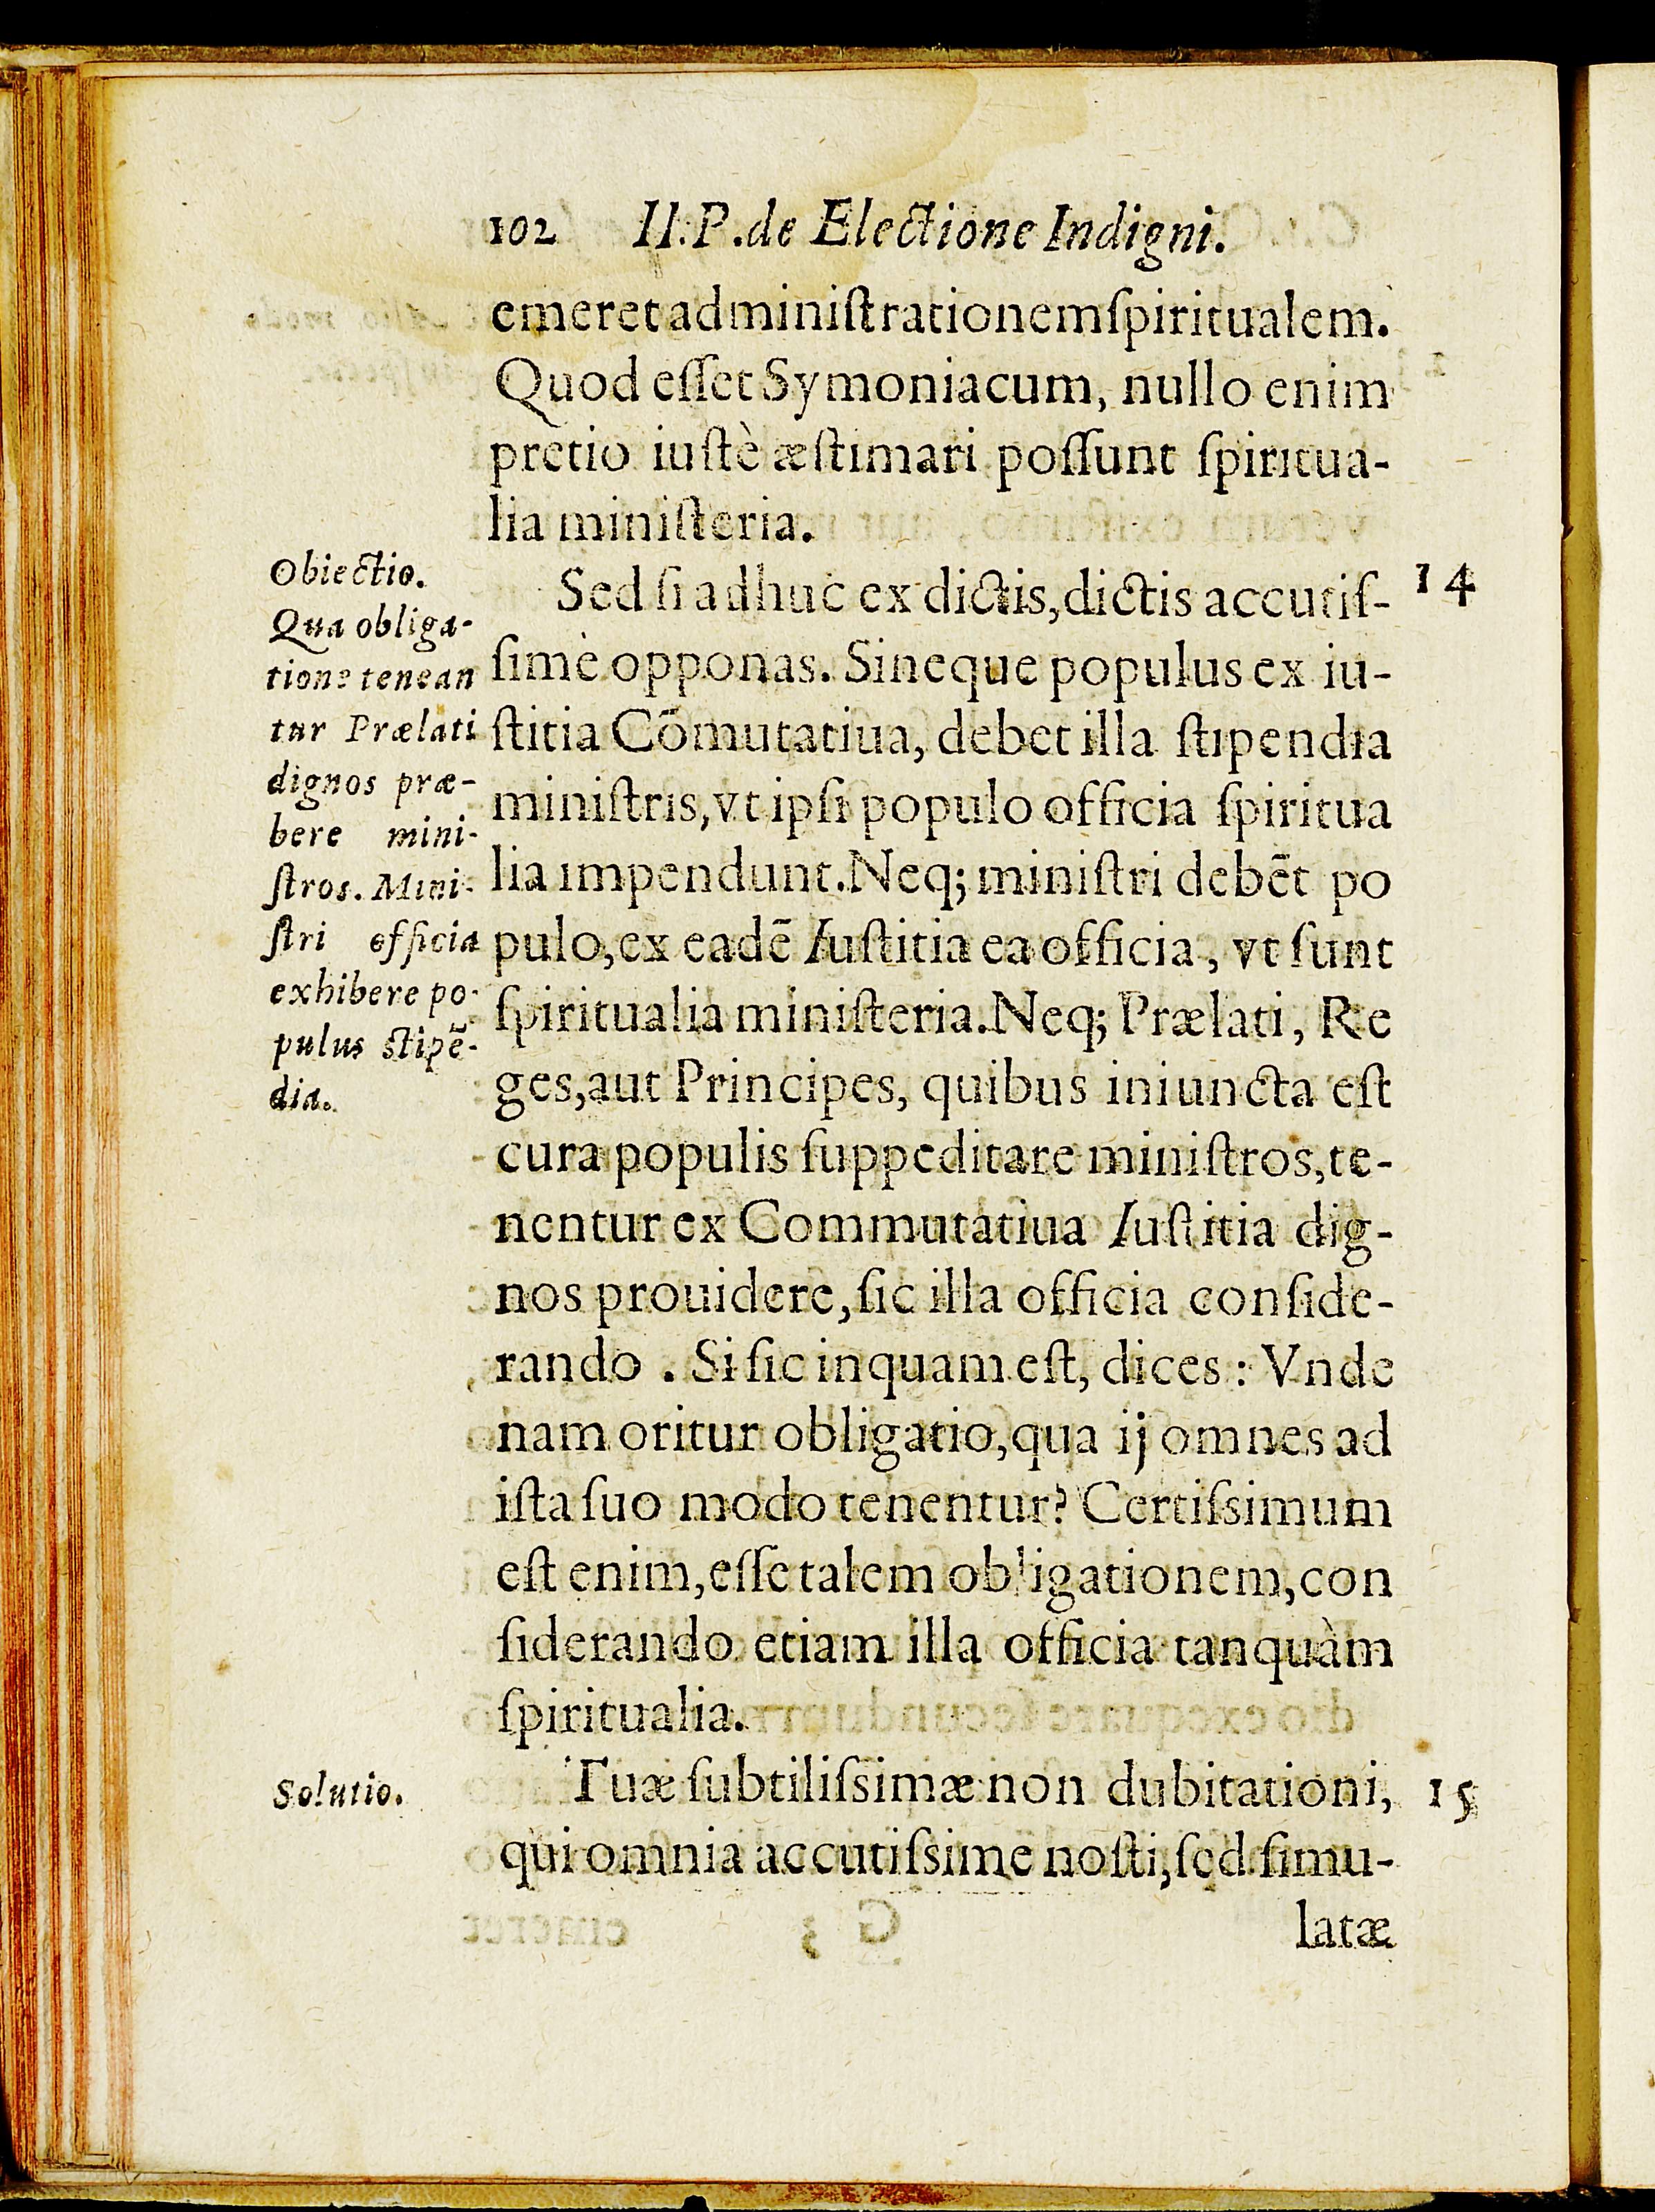 102 II.P.de Electione Indigni.
emeret administrationem ſpiritualem.
Quod eſſet Symoniacum, nullo enim
pretio iuſtè æſtimari poſſunt ſpiritua-
lia miniſteria.
Obiectio.
Qua obliga-
tione tenean
tur Prælati
dignos præ-
bere mini-
ſtros. Mini-
ſtri officia
exhibere po-
pulus ſtipē-
dia.
14
Sed ſi adhuc ex dictis, dictis accutiſ-
ſimè opponas. Si neque populus ex iu-
ſtitia Cōmutatiua, debet illa ſtipendia
miniſtris, vt ipſi populo officia ſpiritua
lia impendunt. Neq; miniſtri debēt po
pulo, ex eadē Iuſtitia ea officia, vt ſunt
ſpiritualia miniſteria. Neq; Prælati, Re
ges, aut Principes, quibus iniuncta eſt
cura populis ſuppeditare miniſtros, te-
nentur ex Commutatiua Iuſtitia dig-
nos prouidere, ſic illa officia conſide-
rando. Si ſic inquam eſt, dices: Vnde
nam oritur obligatio, qua ij omnes ad
iſta ſuo modo tenentur? Certiſsimum
eſt enim, eſſe talem obligationem, con
ſiderando etiam illa officia tanquàm
ſpiritualia.
Solutio.
15
Tuæ ſubtiliſsimæ non dubitationi,
qui omnia accutiſsime noſti, ſed ſimu-
latæ